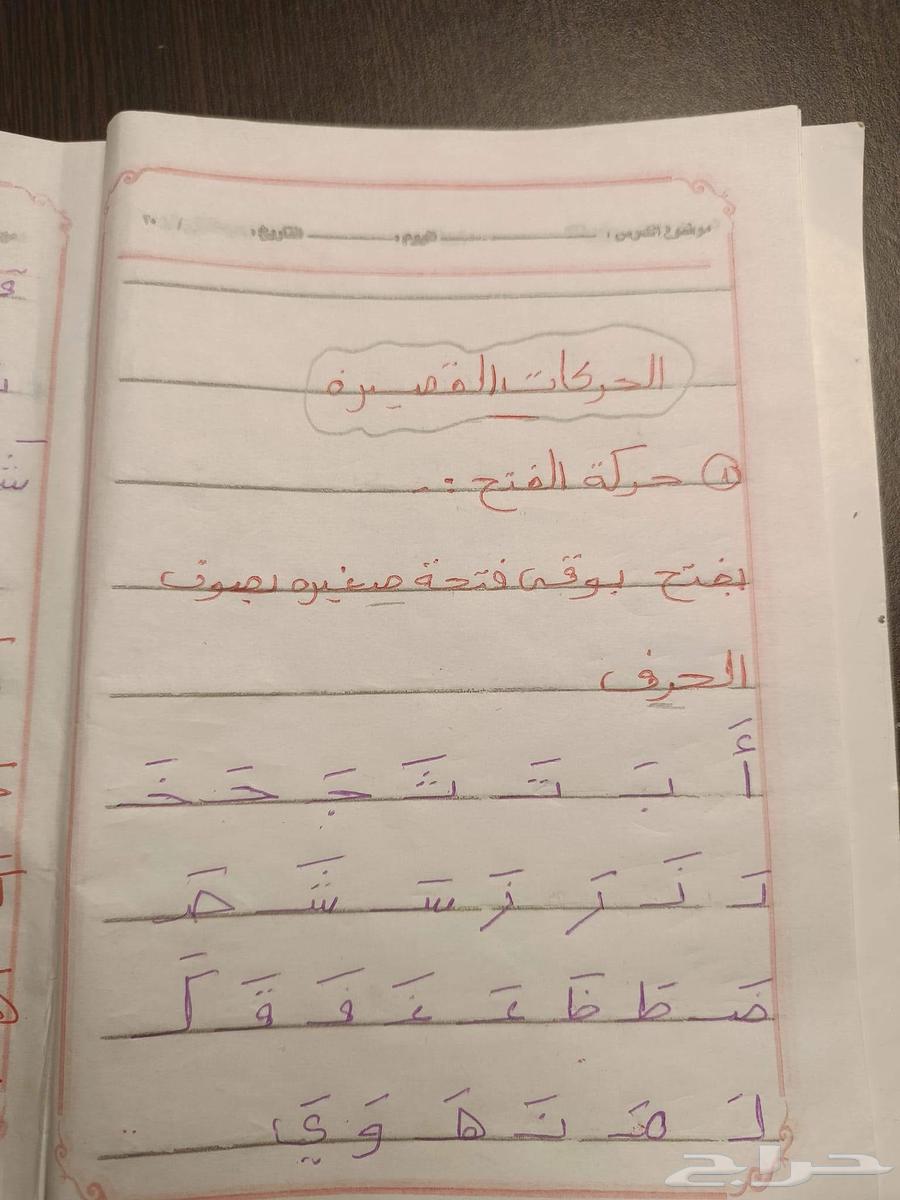 موضوع الدرس : اليوم : التاريخ : / ٢٠
الحركات القصيرة
١ حركة الفتح :-
بفتح فتحة صغيره بصوت
الحرف
أَ بَ تَ ثَ جَ حَ خَ
دَ ذَ رَ زَ سَ شَ صَ
ضَ طَ ظَ عَ غَ فَ قَ كَ
لَ مَ نَ هَ وَ يَ
حراج